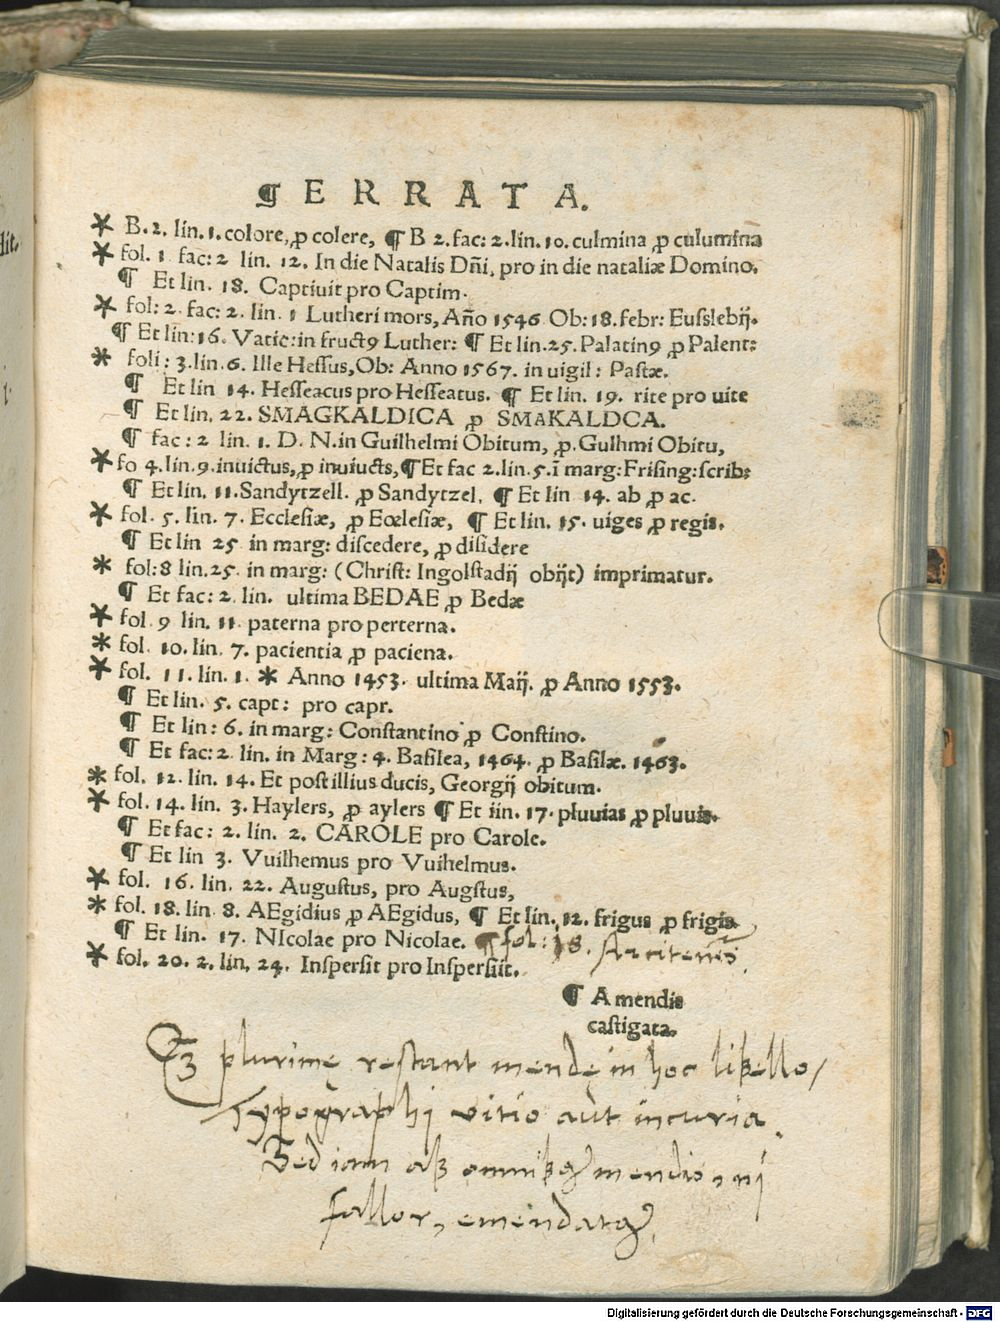 ¶ ERRATA.
* B. 2. lin. 1. colore, ꝓ colere, ¶ B 2. fac: 2. lin. 10. culmina ꝓ culumina
* fol. 1 fac: 2 lin. 12. In die Natalis Dñi, pro in die nataliæ Domino.
¶ Et lin. 18. Captiuit pro Captim.
* fol: 2. fac: 2. lin. 1 Lutheri mors, Año 1546 Ob: 18. febr: Euſslebij.
¶ Et lin: 16. Vatic: in fructꝰ Luther: ¶ Et lin. 25. Palatinꝰ ꝓ Palent:
* foli: 3. lin. 6. Ille Heſſus, Ob: Anno 1567. in uigil: Paſtæ.
¶ Et lin 14. Heſſeacus pro Heſſeatus. ¶ Et lin. 19. rite pro uite
¶ Et lin. 22. SMAGKALDICA ꝓ SMAKALDCA.
¶ fac: 2 lin. 1. D. N. in Guilhelmi Obitum, ꝓ. Gulhmi Obitu,
* fo 4. lin. 9. inuictus, ꝓ inuiucts, ¶ Et fac 2. lin. 5. ī marg: Friſing: ſcrib:
¶ Et lin. 11. Sandytzell. ꝓ Sandytzel. ¶ Et lin 14. ab ꝓ ac.
* fol. 5. lin. 7. Eccleſiæ, ꝓ Eœleſiæ, ¶ Et lin. 15. uiges ꝓ regis.
¶ Et lin 25 in marg: diſcedere, ꝓ diſidere
* fol: 8 lin. 25. in marg: (Chriſt: Ingolſtadij obijt) imprimatur.
¶ Et fac: 2. lin. ultima BEDAE ꝓ Bedæ
* fol. 9 lin. 11 paterna pro perterna.
* fol. 10. lin. 7. pacientia ꝓ paciena.
* fol. 11. lin. 1. * Anno 1453. ultima Maij. ꝓ Anno 1553.
¶ Et lin. 5. capt: pro capr.
¶ Et lin: 6. in marg: Conſtantino ꝓ Conſtino.
¶ Et fac: 2. lin. in Marg: 4. Baſilea, 1464. ꝓ Baſilæ. 1463.
* fol. 12. lin. 14. Et poſt illius ducis, Georgij obitum.
* fol. 14. lin. 3. Haylers, ꝓ aylers ¶ Et iin. 17. pluuias ꝓ pluuis.
¶ Et fac: 2. lin. 2. CAROLE pro Carole.
¶ Et lin 3. Vuilhemus pro Vuihelmus.
* fol. 16. lin. 22. Auguſtus, pro Augſtus,
* fol. 18. lin 8. AEgidius ꝓ AEgidus, ¶ Et lin. 12. frigus ꝓ frigis
¶ Et lin. 17. NIcolae pro Nicolae. ¶ fol: 18.
* fol. 20. 2. lin. 24. Inſperſit pro Inſperſiit.
¶ A mendis
caſtigata.
Et plurimę reſtant mendę in hoc libello/
Typographi vitio aut incuria.
Sed iam ab omnibꝰ mendis, ni
fallor, emendatꝰ.
Digitalisierung gefördert durch die Deutsche Forschungsgemeinschaft - DFG